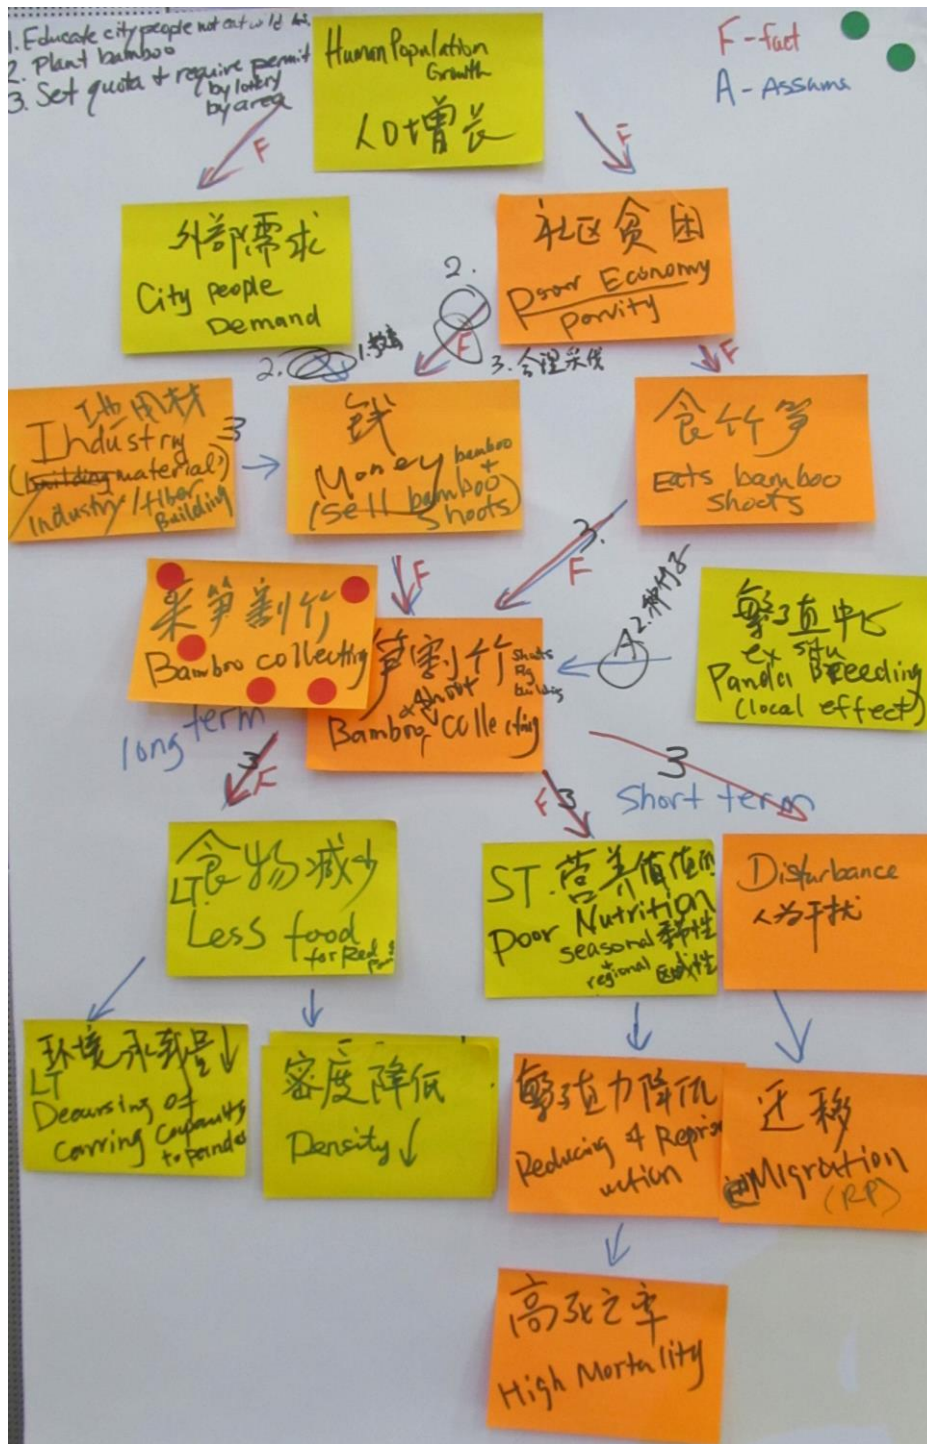 1. Educate city people not eat wild
2. Plant bamboo
3. Set quota + require permit
by lottery
by area
Human Population
Growth
人口增长
F-fact
A-Assums
F
F
外部需求
City people
Demand
社区贫困
Poor Economy
Porvity
2.
F
F
2.
1.
3. 合理采伐
Industry
(building material)
Industry / fiber
Building
3
钱
Money bamboo
(sell bamboo +
shoots)
食竹笋
Eats bamboo
shoots
F
3.
F
采笋割竹
Bamboo collecting
笋割竹
shoots
& shoot
building
Bamboo collecting
A
2.种竹子
繁殖中心
ex situ
Panda Breeding
(local effect)
long term
3
F
F
3
3
Short term
食物减少
LT
Less food
for Red
ST.
Poor Nutrition
seasonal 季节性
+
regional 区域性
Disturbance
人为干扰
环境承载量↓
LT
Decursing of
Carring Capacity
to pandas
密度降低
Density ↓
繁殖力降低
Reducing of Repro
uction
迁移
Migration
(RP)
高死亡率
High Mortality